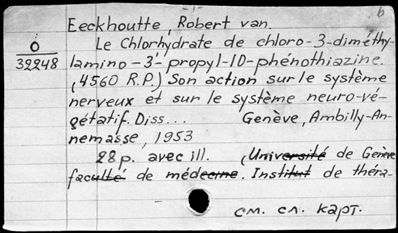 -1-
б
Eeckhoutte, Robert van.
O
32248
Le Chlorhydrate de chloro-3-diméthy-
lamino-3-propyl-10-phénothiazine.
(4560 R.P.) Son action sur le système
nerveux et sur le système neuro-vé-
gétatif. Diss... Genève, Ambilly-An-
nemasse, 1953
28 p. avec ill. (Université de Genève
faculté de médecine. Institut de théra-
см. сл. карт.